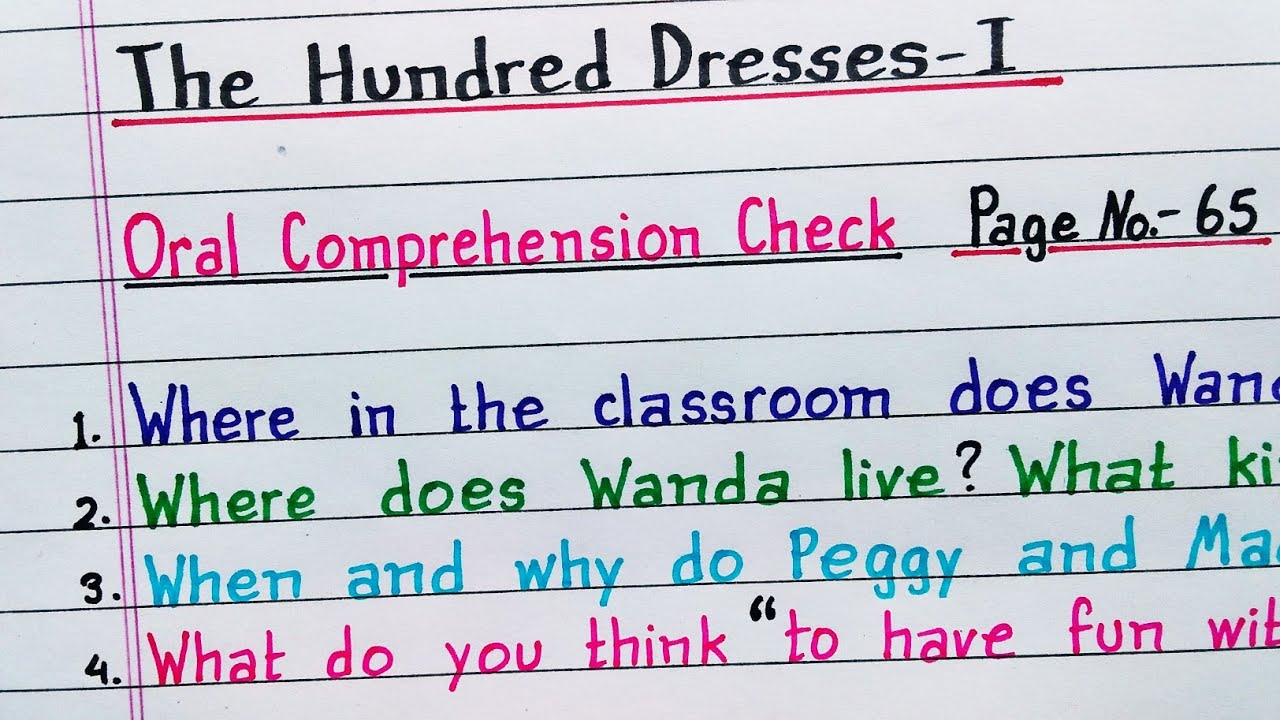 The Hundred Dresses-I
Oral Comprehension Check Page No.- 65
1. Where in the classroom does Wan
2. Where does Wanda live? What ki
3. When and why do Peggy and Ma
4. What do you think "to have fun wit